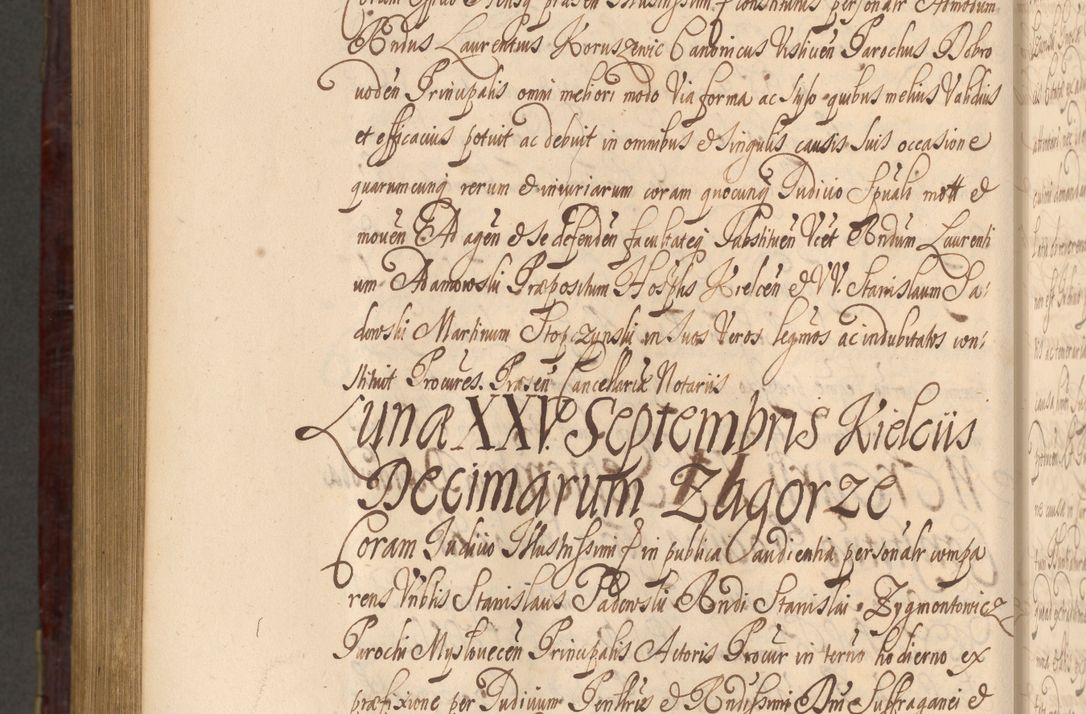 Rndus Laurentius Koruszewic Canonicus Vislicen Parochus Dobro
voden Principalis omni meliori modo via forma ac stylo quibus melius validius
et efficacius potuit ac debuit in omnibus et singulis causis suis occasione
quarumcunq rerum et iniuriarum coram quocunq Iudicio Spuali mott et
moven Ad agen et se defenden facultateq substituen Vcet Rndum Laurenti
um Adamowski Præpositum Hosplis Kielcen et VV. Stanislaum Sa-
dowski Martinum Stopczynski in suos veros legmos ac indubitatos con-
stituit Procures. Præsen Cancellariæ Notariis
Luna XXV. Septembris Kielciis
Decimarum Zagorze
Coram Iudicio Illustrissimi in publica audientia personalr compa
rens Vnblis Stanislaus Sadowski Rndi Stanislai Zygmontowicz
Parochi Myslovecen Principalis Actoris Procur in termo hodierno ex
præfixione per Iudicium et Rndissimi Dni Suffraganei et